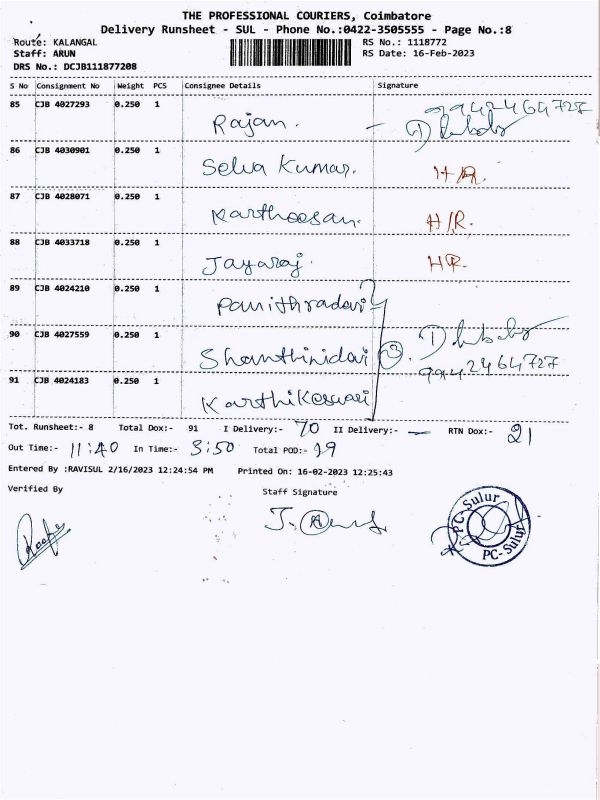 THE PROFESSIONAL COURIERS, Coimbatore
Delivery Runsheet - SUL - Phone No.:0422-3505555 - Page No.:8
Route: KALANGAL RS No.: 1118772
Staff: ARUN RS Date: 16-Feb-2023
DRS No.: DCJB111877208
S No Consignment No Weight PCS Consignee Details Signature
85 CJB 4027293 0.250 1 Rajan. - 9942464728
86 CJB 4030901 0.250 1 Selva Kumar. H/R.
87 CJB 4028071 0.250 1 Karthoosan. H/R.
88 CJB 4033718 0.250 1 Jayaraj. HR.
89 CJB 4024210 0.250 1
90 CJB 4027559 0.250 1 Shanthinidavi 3. 9942464727
91 CJB 4024183 0.250 1
Tot. Runsheet:- 8 Total Dox:- 91 I Delivery:- 70 II Delivery:- — RTN Dox:- 21
Out Time:- 11:40 In Time:- 3:50 Total POD:- 19
Entered By :RAVISUL 2/16/2023 12:24:54 PM Printed On: 16-02-2023 12:25:43
Verified By Staff Signature
PC-Sulur
PC-Sulur